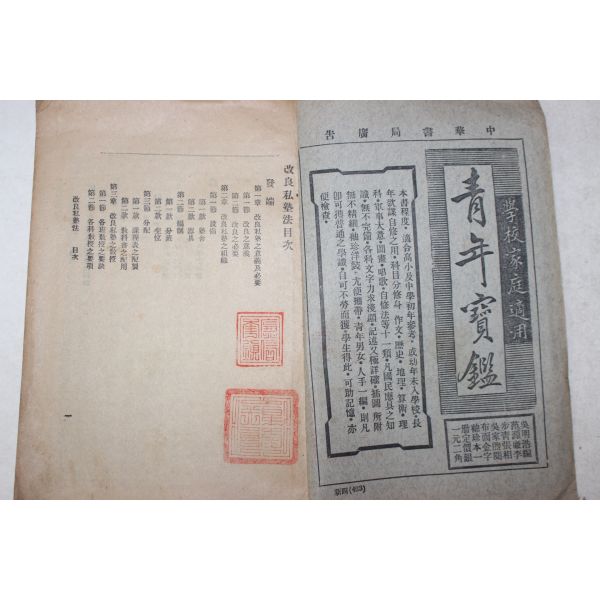 中華書局廣告
學校家庭適用
青年寶鑑
本書程度·適合高小及中學初年參考·或幼年未入學校·長
年欲謀自修之用·科目分修身·作文·歷史·地理·算術·理
科·軍事大意·圖畫·唱歌·自修法等十一類·凡國民應具之知
識·無不完備·各科文字力求淺顯·記述又極詳確·插圖·所附
無不精細·袖珍洋裝·尤便攜帶·青年男女·人手一編·則凡
卽可獲普通之學識·自可不勞而獲·學生得此·可助記憶·亦
便檢查·
布面金字
袖珍本一
冊定價銀
一元二角
新四(493)
改良私塾法目次
發端
第一章 改良私塾之意義及必要
第一節 改良之意義
第二節 改良之必要
第二章 改良私塾之組織
第一節 設備
第一款 塾舍
第二款 器具
第二節 編制
第一款 分班
第二款 變化
第三節 分配
第一款 課程表之配製
第二款 教科書之配用
第三章 改良私塾之教授
第一節 各班教授之要訣
第二節 各科教授之要項
改良私塾法 目次
一